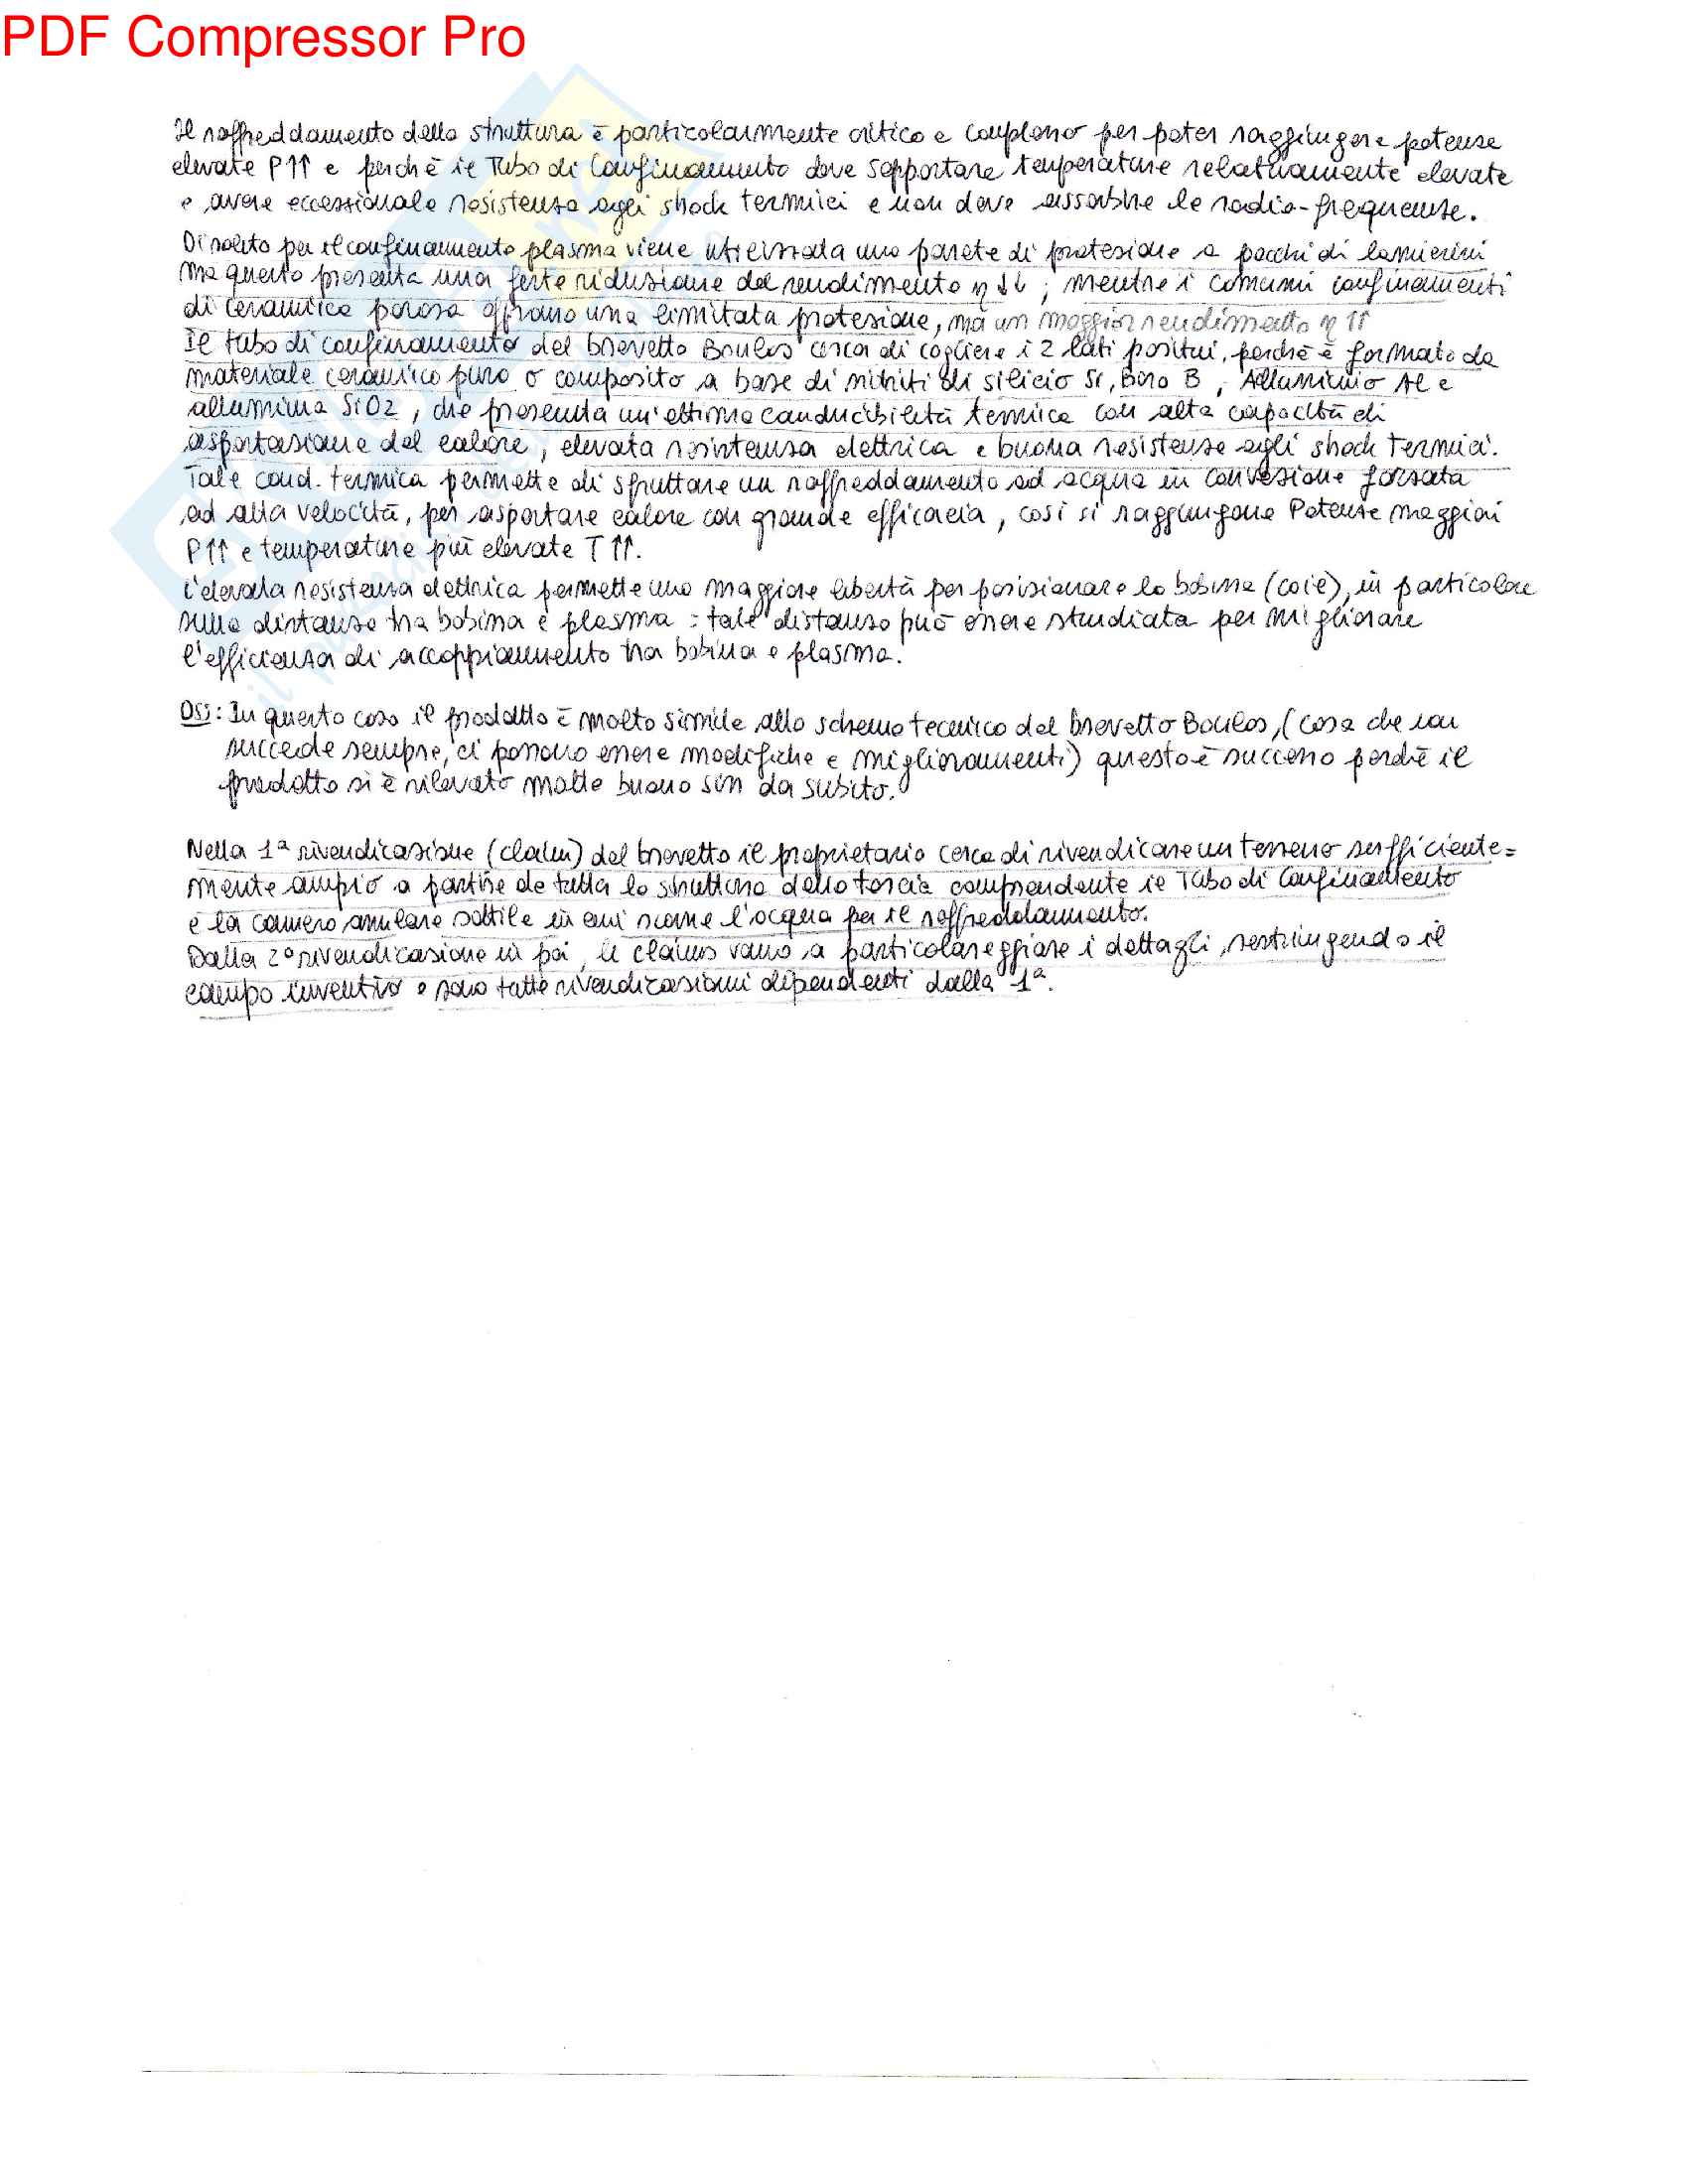 PDF Compressor Pro
Il raffreddamento della struttura è particolarmente critico e complesso per poter raggiungere potenze
elevate P↑↑ e perché il Tubo di Confinamento deve sopportare temperature relativamente elevate
e avere eccezionale resistenza agli shock termici e non deve assorbire le radio-frequenze.
Di solito per il confinamento plasma viene utilizzata una parete di protezione a pacchi di lamierini
ma questo presenta una forte riduzione del rendimento η↓↓; mentre i comuni confinamenti
di ceramica porosa offrono una limitata protezione, ma un maggior rendimento η↑↑
Il tubo di confinamento del brevetto Boulos cerca di cogliere i 2 lati positivi, perché è formato da
materiale ceramico puro o composito a base di nitriti di silicio Si, Boro B, Alluminio Al e
allumina SiO2, che presenta un'ottima conducibilità termica con alta capacità di
asportazione del calore, elevata resistenza elettrica e buona resistenza agli shock termici.
Tale cond. termica permette di sfruttare un raffreddamento ad acqua in convezione forzata
ad alta velocità, per asportare calore con grande efficacia, così si raggiungono Potenze maggiori
P↑↑ e temperature più elevate T↑↑.
L'elevata resistenza elettrica permette una maggiore libertà per posizionare la bobina (coil), in particolare
sulla distanza tra bobina e plasma: tale distanza può essere studiata per migliorare
l'efficienza di accoppiamento tra bobina e plasma.
OSS: In questo caso il prodotto è molto simile allo schema tecnico del brevetto Boulos, (cosa che non
succede sempre, ci possono essere modifiche e miglioramenti) questo è successo perché il
prodotto si è rilevato molto buono sin da subito.
Nella 1ª rivendicazione (claim) del brevetto il proprietario cerca di rivendicare un terreno sufficiente=
mente ampio a partire da tutta la struttura della torcia comprendente il Tubo di Confinamento
e la camera anulare sottile in cui scorre l'acqua per il raffreddamento.
Dalla 2ª rivendicazione in poi, li claims vanno a particolareggiare i dettagli, restringendo il
campo inventivo e sono tutte rivendicazioni dipendenti dalla 1ª.